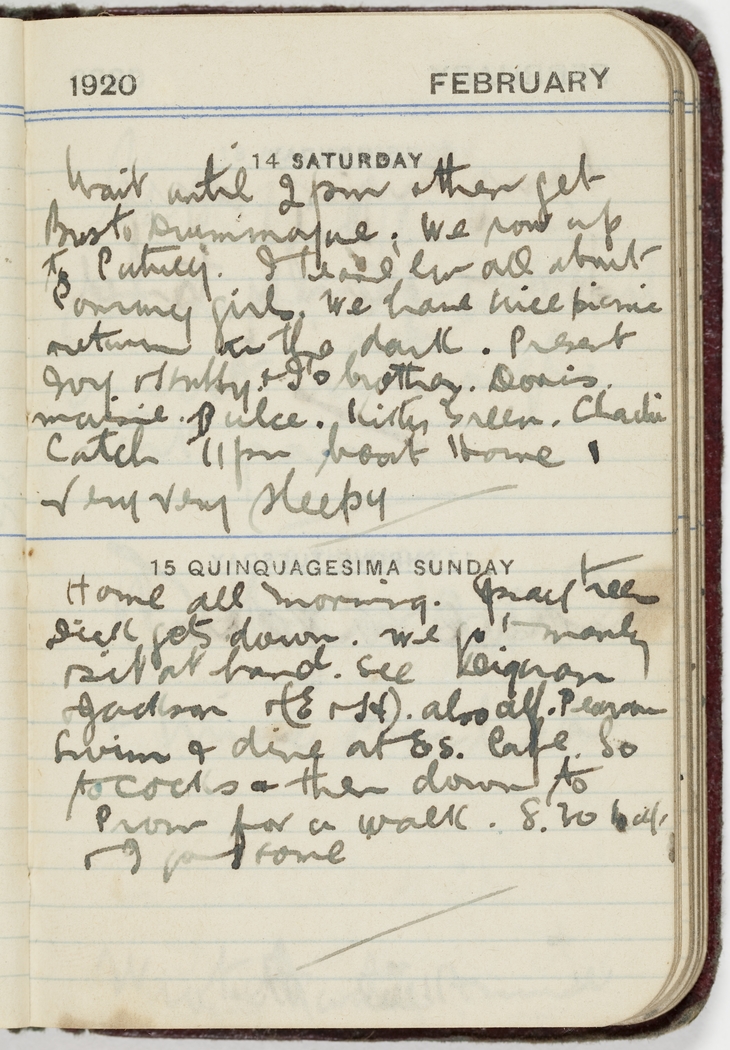 1920 FEBRUARY
14 SATURDAY
Wait until 2 pm & then get
Bus to Drummoyne. We row up
to I tease Ew all about
Pommy girls. We have nice picnic
return in the dark. Present
Ivy & & I's brother. Doris.
maisie. Dulce. Kitty Green. Charlie
Catch 11 pm boat Home
very very sleepy
15 QUINQUAGESIMA SUNDAY
Home all morning.
Dick gets down. We go to manly
sit at band. See
& Jackson & (E & H). also Pearson
Swim & dine at Es. Cafe. So
to Cocks & then down to
Prom for a walk. 8.30
& I home